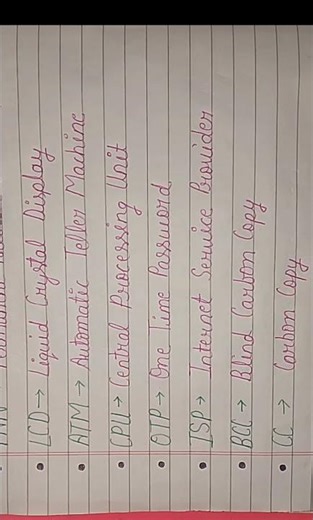 LCD → Liquid Crystal Display
ATM → Automatic Teller Machine
CPU → Central Processing Unit
OTP → One Time Password
ISP → Internet Service Provider
BCC → Blind Carbon Copy
CC → Carbon Copy